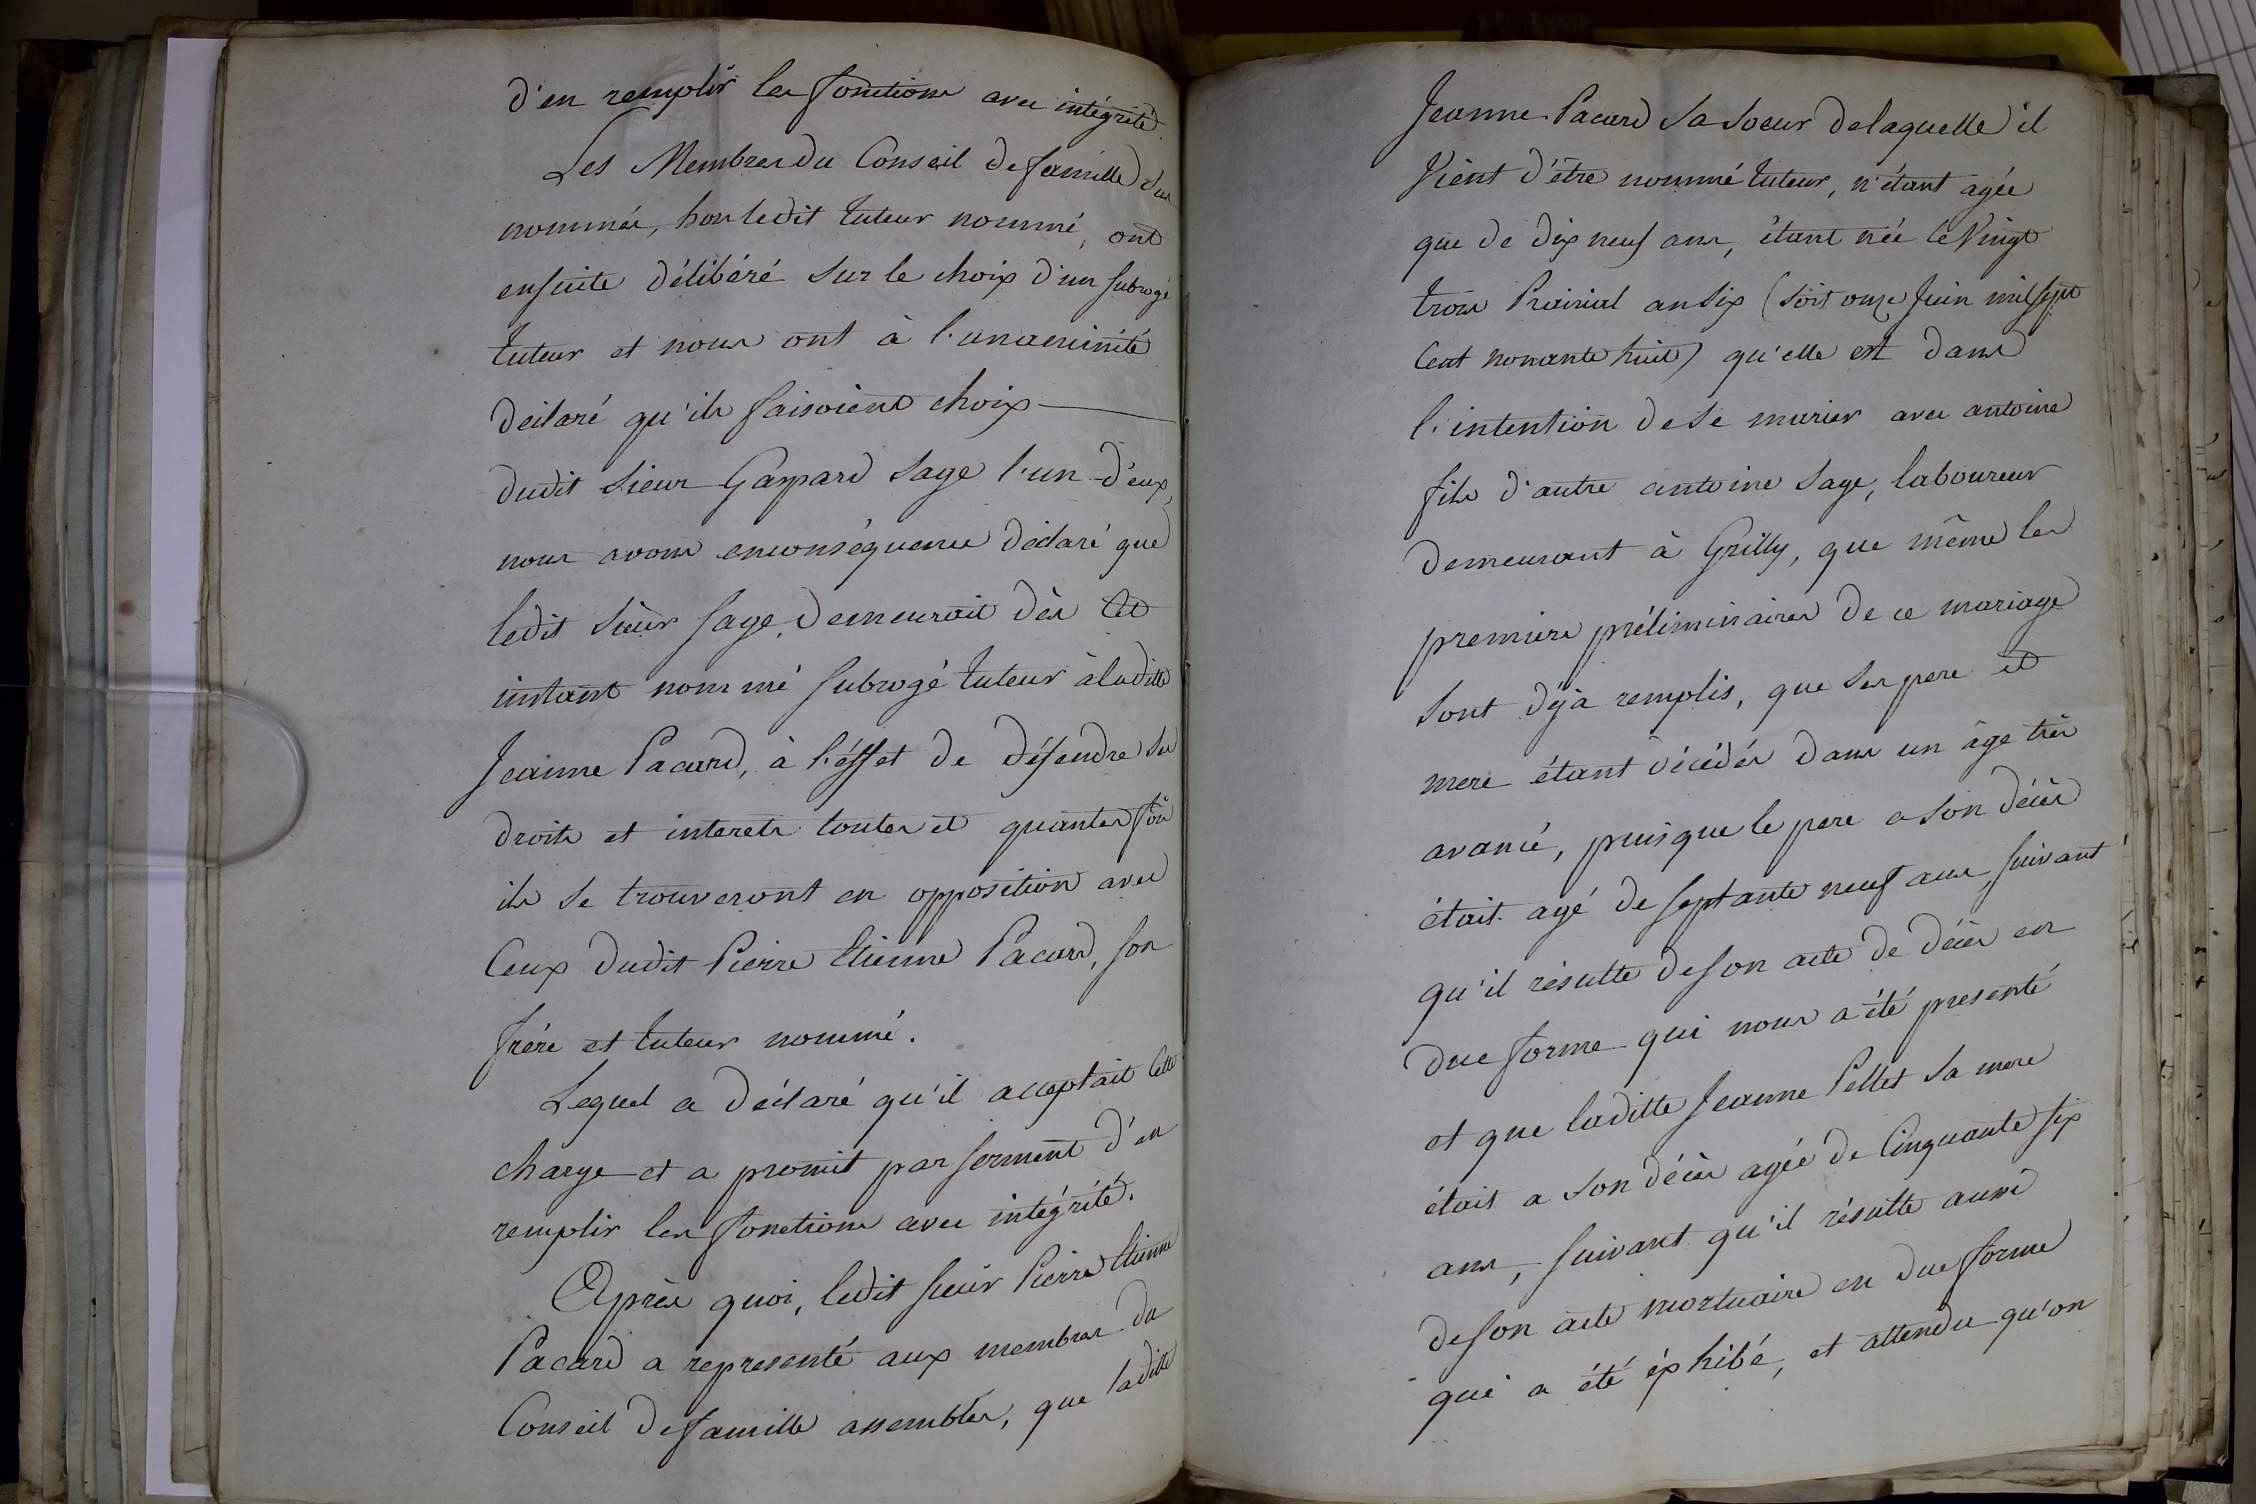 d'en remplir les fonctions avec intégrité.
Les Membres du Conseil de famille sus
nommés, hors ledit tuteur nommé, ont
ensuite délibéré sur le choix d'un subrogé
tuteur et nous ont à l'unanimité
déclaré qu'ils faisoient choix
dudit sieur Gaspard Sage l'un d'eux,
nous avons en conséquence déclaré que
ledit sieur Sage, demeurait dès cet
instant nommé subrogé tuteur à laditte
Jeanne Pacard, à l'éffet de défendre ses
droits et interets toutes et quantes fois
ils se trouveront en opposition avec
Ceux dudit Pierre Etienne Pacard, son
frére et tuteur nommé.
Lequel a déclaré qu'il acceptait cette
charge et a promit par serment d'en
remplir les fonctions avec intégrité.
Après quoi, ledit sieur Pierre Etienne
Pacard a representé aux membres du
Conseil de famille assemblés, que laditte
Jeanne Pacard sa soeur de laquelle il
Vient d'être nommé tuteur, n'étant agée
que de dix neuf ans, étant née le Vingt
trois Prairial an six (soit onze Juin mil sept
Cent nonante huit) qu'elle est dans
l'intention de se marier avec antoine
fils d'autre antoine Sage, laboureur
demeurant à Grilly, que même les
premiers préliminaires de ce mariage
sont déja remplis, que ses pere et
mere étant décédés dans un âge très
avancé, puisque le pere a son décès
était agé de septante neuf ans, suivant
qu'il résulte de son acte de décès en
due forme qui nous a été presenté
et que laditte Jeanne Pellet sa mere
était a son décès agée de Cinquante six
ans, suivant qu'il résulte aussi
de son acte mortuaire en due forme
qui a été éxhibé, et attendu qu'on